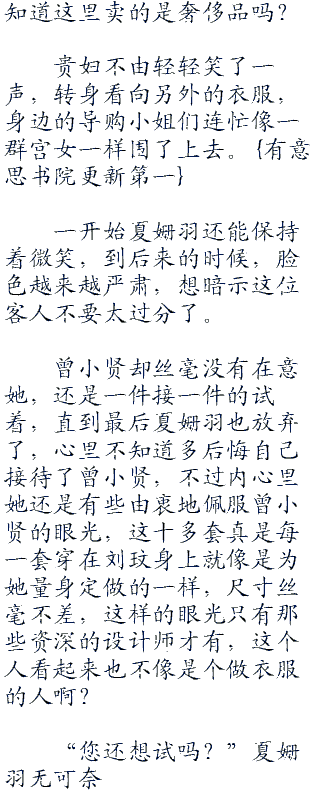 知道这里卖的是奢侈品吗？
贵妇不由轻轻笑了一
声，转身看向另外的衣服，
身边的导购小姐们连忙像一
群宫女一样围了上去。{有意
思书院更新第一}
一开始夏姗羽还能保持
着微笑，到后来的时候，脸
色越来越严肃，想暗示这位
客人不要太过分了。
曾小贤却丝毫没有在意
她，还是一件接一件的试
着，直到最后夏姗羽也放弃
了，心里不知道多后悔自己
接待了曾小贤，不过内心里
她还是有些由衷地佩服曾小
贤的眼光，这十多套真是每
一套穿在刘玟身上就像是为
她量身定做的一样，尺寸丝
毫不差，这样的眼光只有那
些资深的设计师才有，这个
人看起来也不像是个做衣服
的人啊？
“您还想试吗？”夏姗
羽无可奈